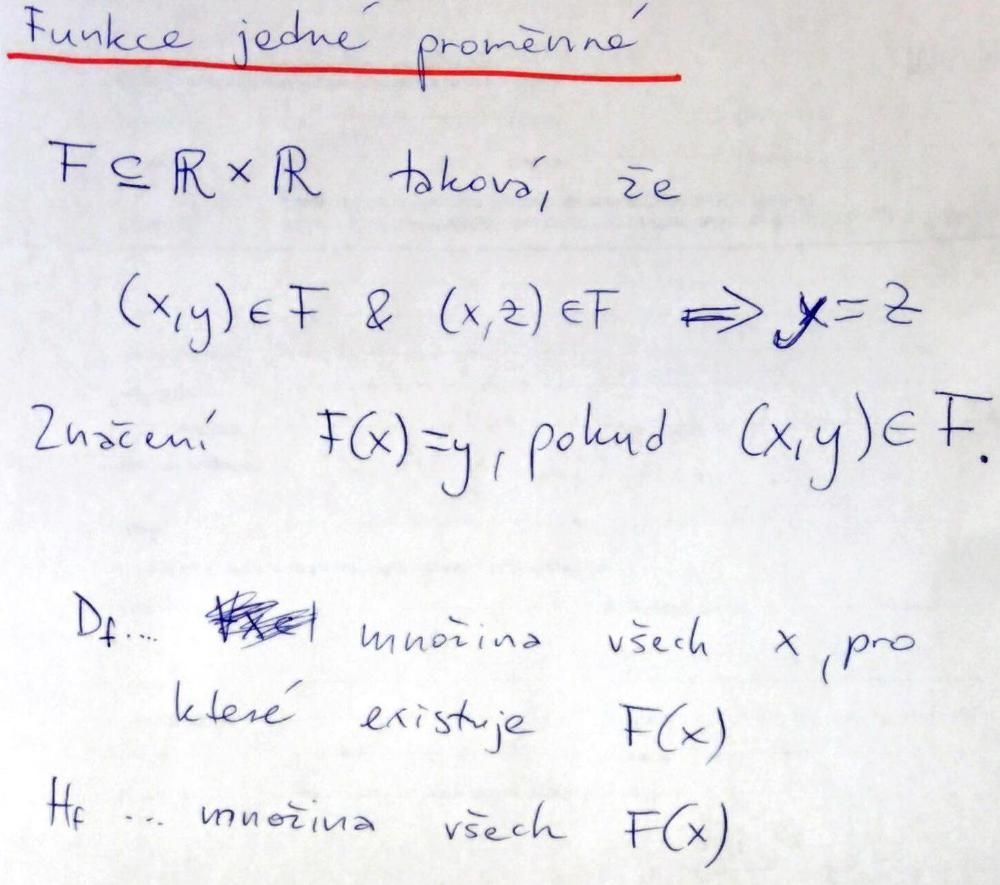 Funkce jedné proměnné
F ⊆ ℝ × ℝ taková, že
(x,y) ∈ F & (x,z) ∈ F ⟹ y = z
Značení F(x)=y, pokud (x,y) ∈ F.
Df.... množina všech x, pro
které existuje F(x)
Hf ... množina všech F(x)